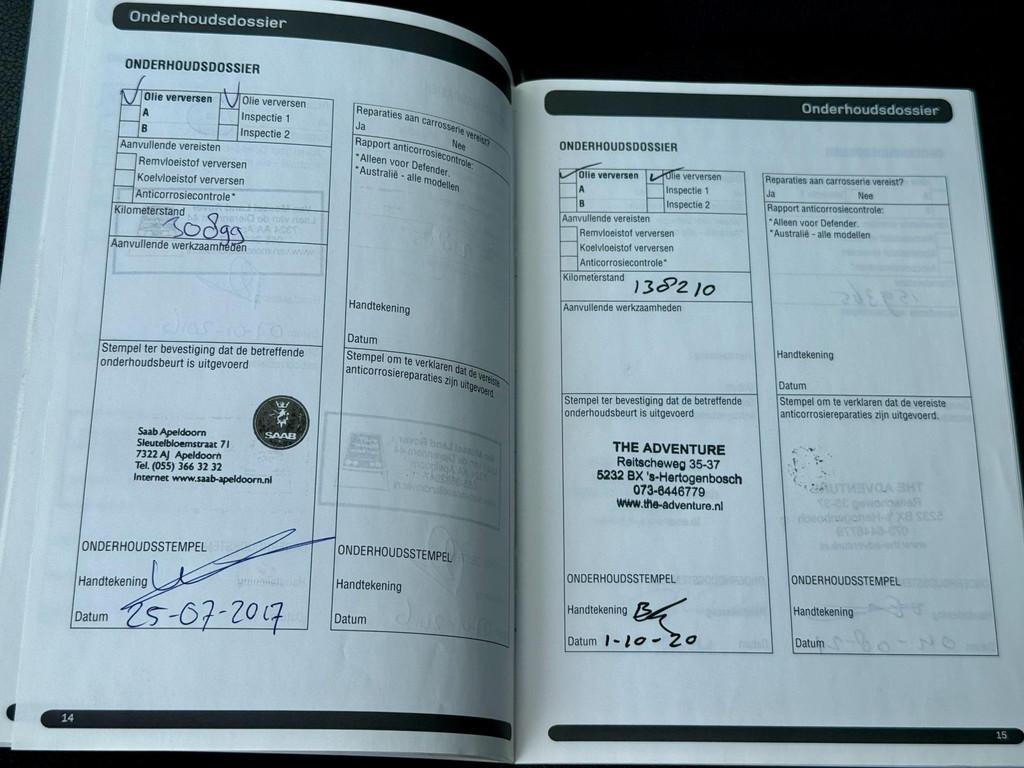 Onderhoudsdossier
ONDERHOUDSDOSSIER
Olie verversen
A
B
Olie verversen
Inspectie 1
Inspectie 2
Aanvullende vereisten
Remvloeistof verversen
Koelvloeistof verversen
Anticorrosiecontrole*
Kilometerstand
30899
Aanvullende werkzaamheden
Stempel ter bevestiging dat de betreffende
onderhoudsbeurt is uitgevoerd
SAAB
Saab Apeldoorn
Sleutelbloemstraat 71
7322 AJ Apeldoorn
Tel. (055) 366 32 32
Internet www.saab-apeldoorn.nl
ONDERHOUDSSTEMPEL
Handtekening
Datum 25-07-2017
Reparaties aan carrosserie vereist?
Ja Nee
Rapport anticorrosiecontrole:
*Alleen voor Defender.
*Australië - alle modellen
Handtekening
Datum
Stempel om te verklaren dat de vereiste
anticorrosiereparaties zijn uitgevoerd.
ONDERHOUDSSTEMPEL
Handtekening
Datum
14
Onderhoudsdossier
ONDERHOUDSDOSSIER
Olie verversen
A
B
Olie verversen
Inspectie 1
Inspectie 2
Aanvullende vereisten
Remvloeistof verversen
Koelvloeistof verversen
Anticorrosiecontrole*
Kilometerstand
138210
Aanvullende werkzaamheden
Stempel ter bevestiging dat de betreffende
onderhoudsbeurt is uitgevoerd
THE ADVENTURE
Reitscheweg 35-37
5232 BX 's-Hertogenbosch
073-6446779
www.the-adventure.nl
ONDERHOUDSSTEMPEL
Handtekening
Datum 1-10-20
Reparaties aan carrosserie vereist?
Ja Nee
Rapport anticorrosiecontrole:
*Alleen voor Defender.
*Australië - alle modellen
Handtekening
Datum
Stempel om te verklaren dat de vereiste
anticorrosiereparaties zijn uitgevoerd.
ONDERHOUDSSTEMPEL
Handtekening
Datum
15